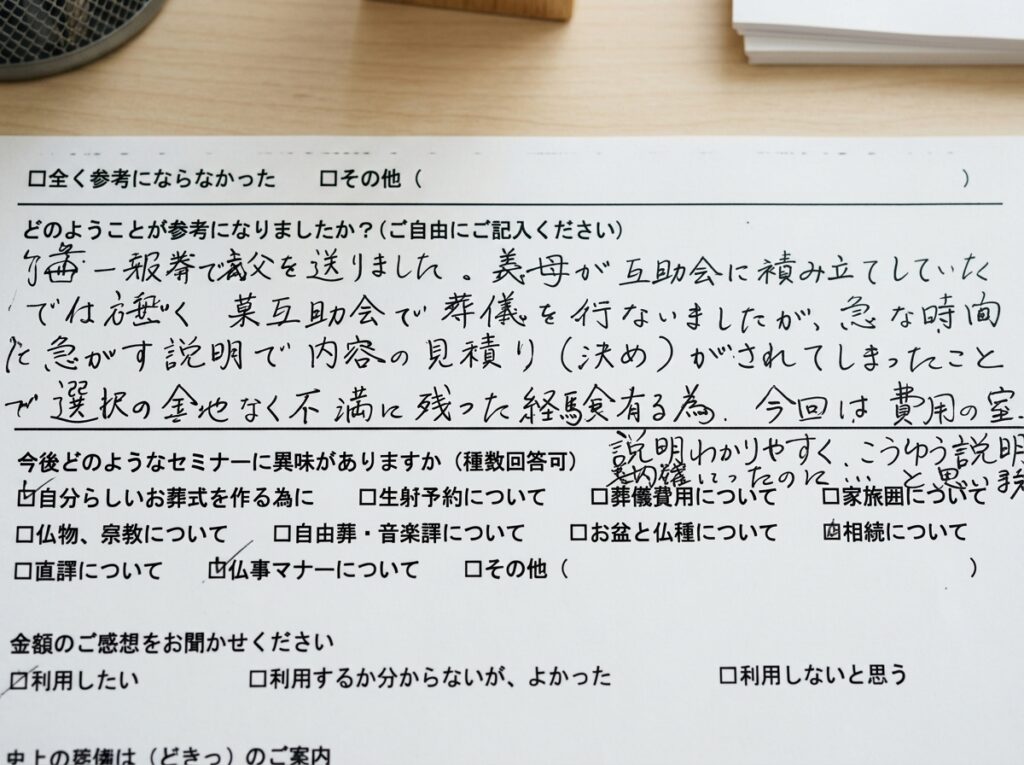 □全く参考にならなかった □その他（ ）
どのようことが参考になりましたか？（ご自由にご記入ください）
一報葬で義父を送りました。義母が互助会に積み立てしていたく
では く 某互助会で葬儀を行ないましたが、急な時間
に急がす説明で内容の見積り（決め）がされてしまったこと
で選択の余地なく不満に残った経験有る為、今回は費用の室.
説明わかりやすく、こうゆう説明
ったのに… と思いま
今後どのようなセミナーに異味がありますか（種数回答可）
☑自分らしいお葬式を作る為に □生射予約について □葬儀費用について □家旅囲について
□仏物、宗教について □自由葬・音楽譁について □お盆と仏種について ☑相続について
□直譁について ☑仏事マナーについて □その他（ ）
金額のご感想をお聞かせください
☑利用したい □利用するか分からないが、よかった □利用しないと思う
（どきっ）のご案内